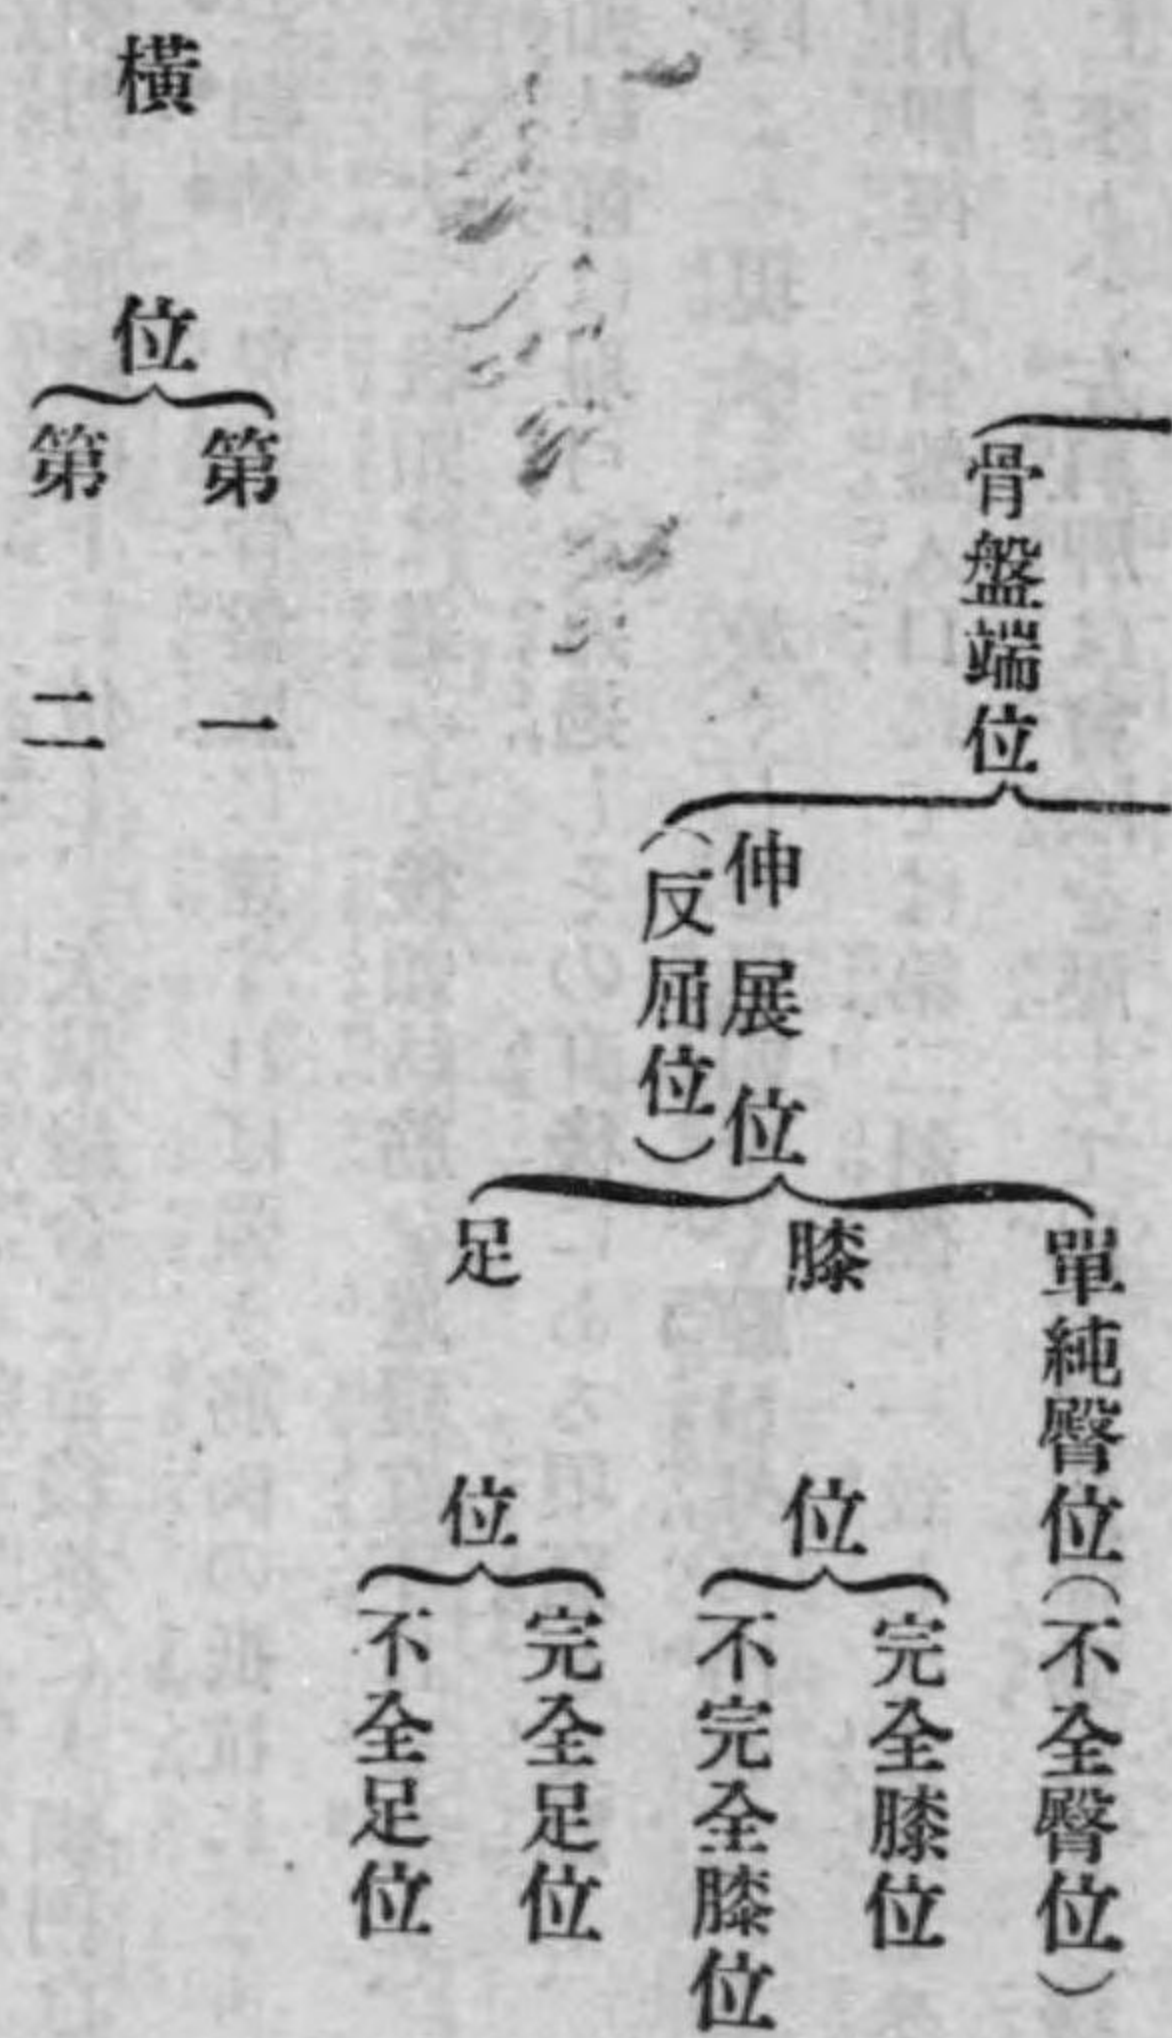 骨盤端位
伸展位
(反屈位)
單純臀位(不全臀位)
膝位
完全膝位
不完全膝位
足位
完全足位
不全足位
橫位
第一
第二